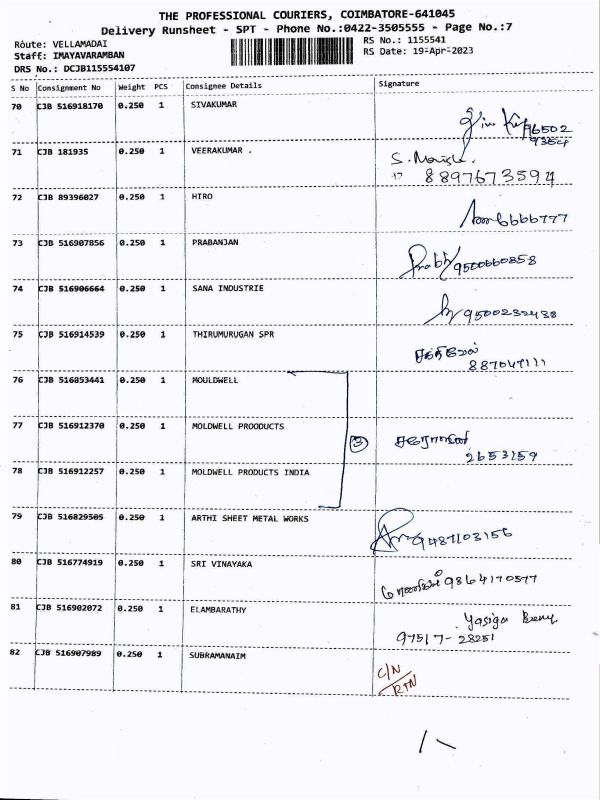 THE PROFESSIONAL COURIERS, COIMBATORE-641045
Delivery Runsheet - SPT - Phone No.:0422-3505555 - Page No.:7
Route: VELLAMADAI
RS No.: 1155541
Staff: IMAYAVARAMBAN
RS Date: 19-Apr-2023
DRS No.: DCJB115554107
S No Consignment No Weight PCS Consignee Details Signature
70 CJB 516918170 0.250 1 SIVAKUMAR
96502
9364
71 CJB 181935 0.250 1 VEERAKUMAR .
8897673594
72 CJB 89396027 0.250 1 HIRO
6666777
73 CJB 516907856 0.250 1 PRABANJAN
9500660858
74 CJB 516906664 0.250 1 SANA INDUSTRIE
9500232438
75 CJB 516914539 0.250 1 THIRUMURUGAN SPR
சக்திவேல்
887047111
76 CJB 516853441 0.250 1 MOULDWELL
77 CJB 516912370 0.250 1 MOLDWELL PROODUCTS
3
2653159
78 CJB 516912257 0.250 1 MOLDWELL PRODUCTS INDIA
79 CJB 516829505 0.250 1 ARTHI SHEET METAL WORKS
9487103156
80 CJB 516774919 0.250 1 SRI VINAYAKA
9864170577
81 CJB 516902072 0.250 1 ELAMBARATHY
97517-28251
82 CJB 516907989 0.250 1 SUBRAMANAIM
C/N
RTN